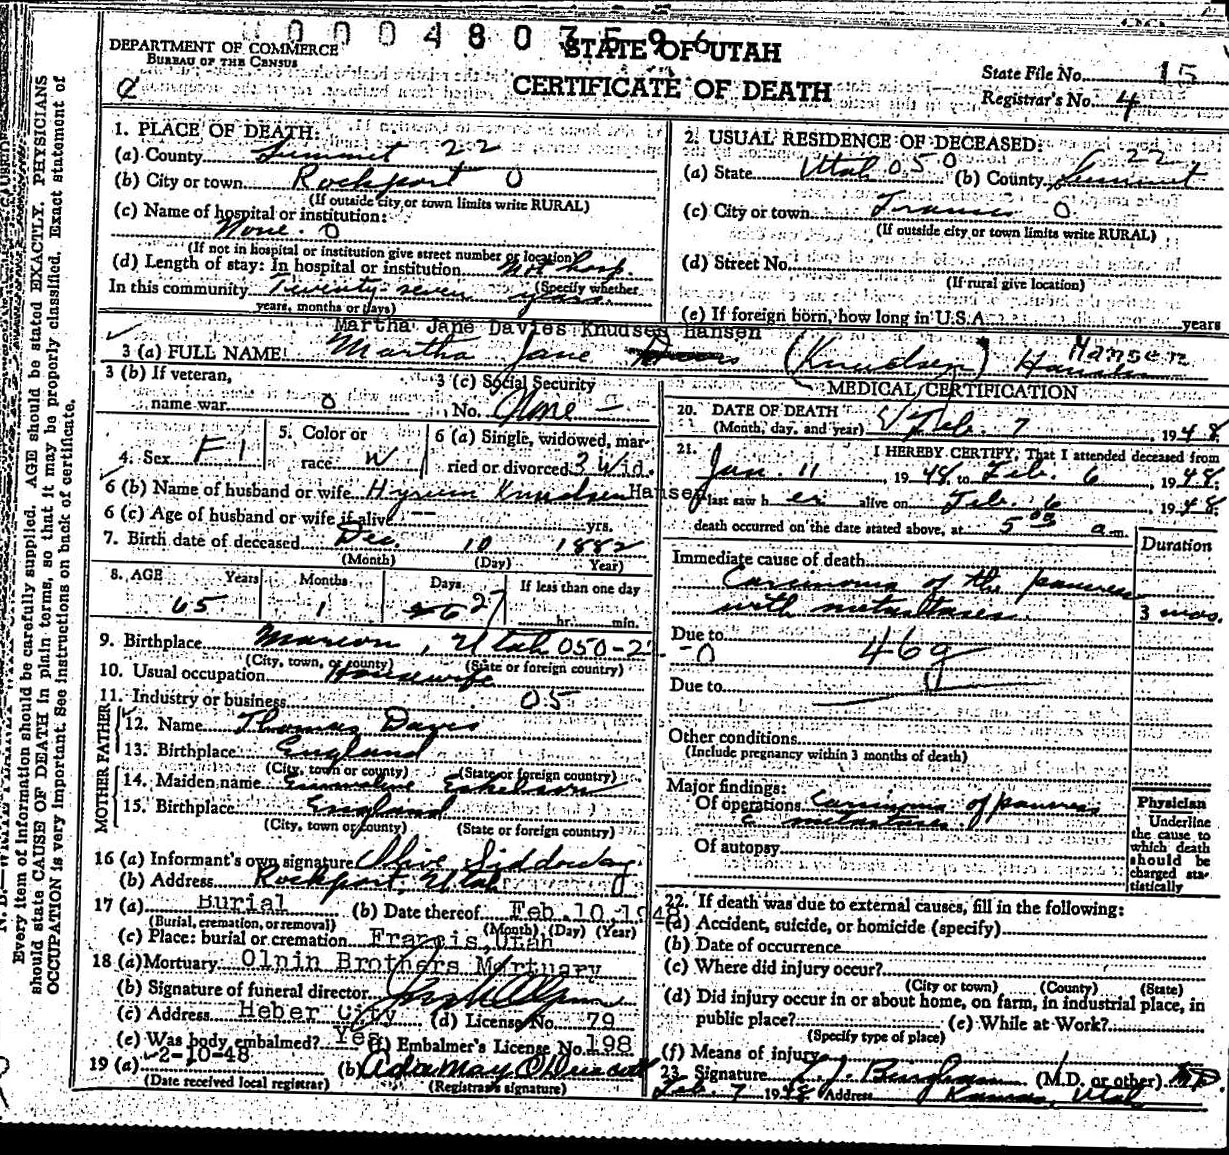 0004803596
DEPARTMENT OF COMMERCE
BUREAU OF THE CENSUS
STATE OF UTAH
CERTIFICATE OF DEATH
State File No. 15
Registrar's No. 4
Every item of information should be carefully supplied. AGE should be stated EXACTLY. PHYSICIANS
should state CAUSE OF DEATH in plain terms, so that it may be properly classified. Exact statement of
OCCUPATION is very important. See instructions on back of certificate.
1. PLACE OF DEATH:
(a) County Summit 22
(b) City or town Rockport 0
(If outside city or town limits write RURAL)
(c) Name of hospital or institution:
None. 0
(If not in hospital or institution give street number or location)
(d) Length of stay: In hospital or institution Not hosp.
(Specify whether
In this community Twenty-seven years.
years, months or days)
2. USUAL RESIDENCE OF DECEASED:
(a) State Utah 050 (b) County Summit 22
(c) City or town Francis 0
(If outside city or town limits write RURAL)
(d) Street No.
(If rural give location)
(e) If foreign born, how long in U.S.A. years
Martha Jane Davies Knudsen Hansen
3 (a) FULL NAME Martha Jane (Knudsen) Hansen
3 (b) If veteran,
name war 0
3 (c) Social Security
No. None
4. Sex F 1
5. Color or
race W
6 (a) Single, widowed, mar-
ried or divorced 3 Wid.
6 (b) Name of husband or wife Hyrum Knudsen Hansen
6 (c) Age of husband or wife if alive -- yrs.
7. Birth date of deceased Dec. 10 1882
(Month) (Day) Year)
8. AGE Years Months Days If less than one day
65 1 27 hr. min.
9. Birthplace Marion, Utah 050-22-0
(City, town, or county) (State or foreign country)
10. Usual occupation Housewife
11. Industry or business 05
FATHER
12. Name Thomas Davis
13. Birthplace England
(City, town or county) (State or foreign country)
MOTHER
14. Maiden name Emmeline Eskelson
15. Birthplace England
(City, town or county) (State or foreign country)
16 (a) Informant's own signature Olive Siddoway
(b) Address Rockport, Utah
17 (a) Burial (b) Date thereof Feb. 10-1948
(Burial, cremation, or removal) (Month) (Day) (Year)
(c) Place: burial or cremation Francis, Utah
18 (a) Mortuary Olpin Brothers Mortuary
(b) Signature of funeral director
(c) Address Heber City (d) License No. 79
(e) Was body embalmed? Yes (f) Embalmer's License No. 198
19 (a) 2-10-48 (b) Ada May O'Driscoll
(Date received local registrar) (Registrar's signature)
MEDICAL CERTIFICATION
20. DATE OF DEATH
(Month, day, and year) Feb. 7, 1948
21. I HEREBY CERTIFY, That I attended deceased from
Jan. 11 1948 to Feb. 6, 1948.
I last saw her alive on Feb. 6 1948
death occurred on the date stated above, at 5 00 a.m.
Duration
Immediate cause of death
Carcinoma of the pancreas
with metastases. 3 mos.
Due to 46g
Due to
Other conditions
(Include pregnancy within 3 months of death)
Major findings:
Of operations Carcinoma of pancreas
c metastases.
Of autopsy
Physician
Underline
the cause to
which death
should be
charged sta-
tistically
22. If death was due to external causes, fill in the following:
(a) Accident, suicide, or homicide (specify)
(b) Date of occurrence
(c) Where did injury occur?
(City or town) (County) (State)
(d) Did injury occur in or about home, on farm, in industrial place, in
public place? (e) While at Work?
(Specify type of place)
(f) Means of injury
23. Signature (M.D. or other) MD
Feb. 7 1948 Address Kamas, Utah